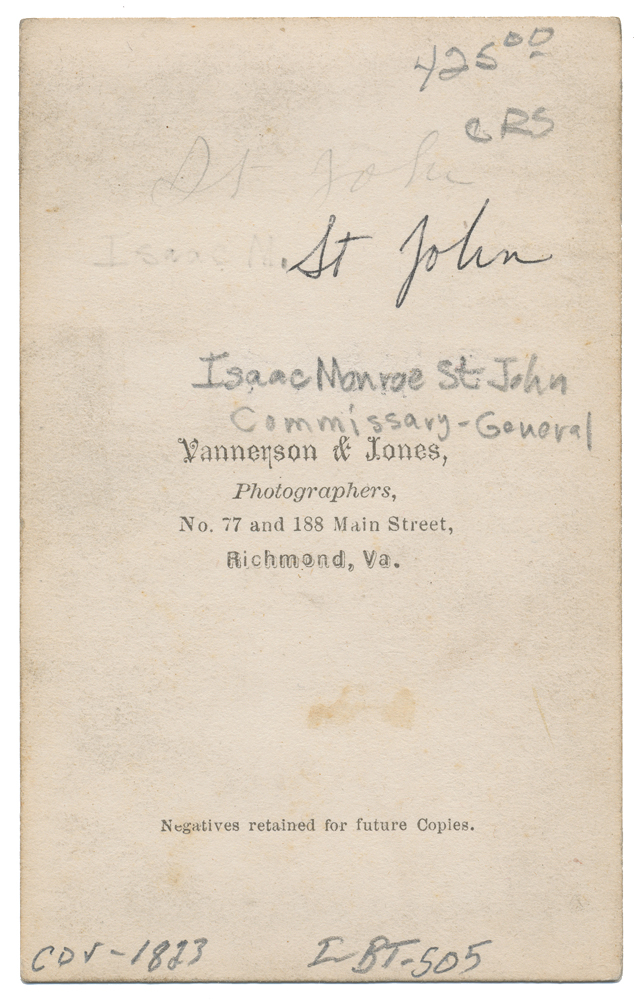 425 00
CRS
St John
Isaac M. St John
Isaac Monroe St John
Commissary-General
Vannerson & Jones,
Photographers,
No. 77 and 188 Main Street,
Richmond, Va.
Negatives retained for future Copies.
CDV-1823 LBT-505